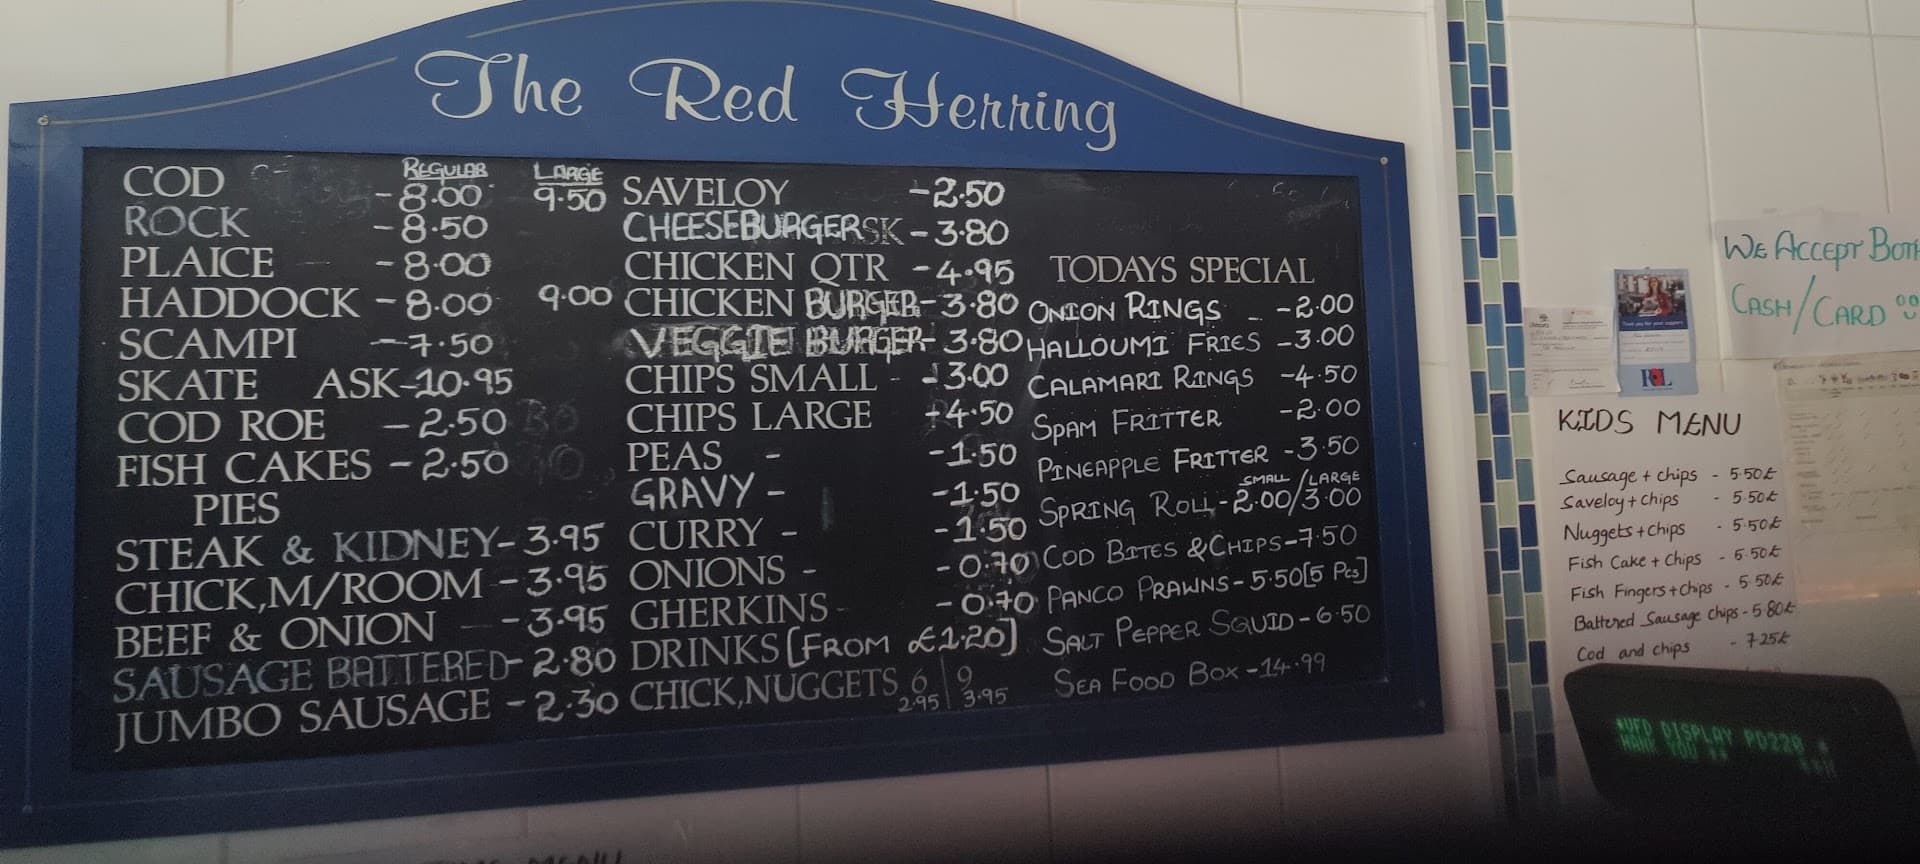 The Red Herring
REGULAR LARGE
COD - 8.00 9.50
ROCK - 8.50
PLAICE - 8.00
HADDOCK - 8.00 9.00
SCAMPI - 7.50
SKATE ASK - 10.95
COD ROE - 2.50
FISH CAKES - 2.50
PIES
STEAK & KIDNEY - 3.95
CHICK,M/ROOM - 3.95
BEEF & ONION - 3.95
SAUSAGE BATTERED - 2.80
JUMBO SAUSAGE - 2.30
SAVELOY - 2.50
CHEESEBURGER - 3.80
CHICKEN QTR - 4.95
CHICKEN BURGER - 3.80
VEGGIE BURGER - 3.80
CHIPS SMALL - 3.00
CHIPS LARGE - 4.50
PEAS - - 1.50
GRAVY - - 1.50
CURRY - - 1.50
ONIONS - - 0.70
GHERKINS - - 0.70
DRINKS [FROM £1.20]
CHICK,NUGGETS 6 | 9
2.95 | 3.95
TODAYS SPECIAL
ONION RINGS - 2.00
HALLOUMI FRIES - 3.00
CALAMARI RINGS - 4.50
SPAM FRITTER - 2.00
PINEAPPLE FRITTER - 3.50
SMALL / LARGE
SPRING ROLL - 2.00/3.00
COD BITES & CHIPS - 7.50
PANCO PRAWNS - 5.50 [5 Pcs]
SALT PEPPER SQUID - 6.50
SEA FOOD BOX - 14.99
WE ACCEPT BOTH
CASH/CARD
Thank you for your support
KIDS MENU
Sausage + chips - 5.50£
Saveloy + chips - 5.50£
Nuggets + chips - 5.50£
Fish Cake + Chips - 5.50£
Fish Fingers + chips - 5.50£
Battered Sausage chips - 5.80£
Cod and chips - 7.25£
*VFD DISPLAY PD220 *